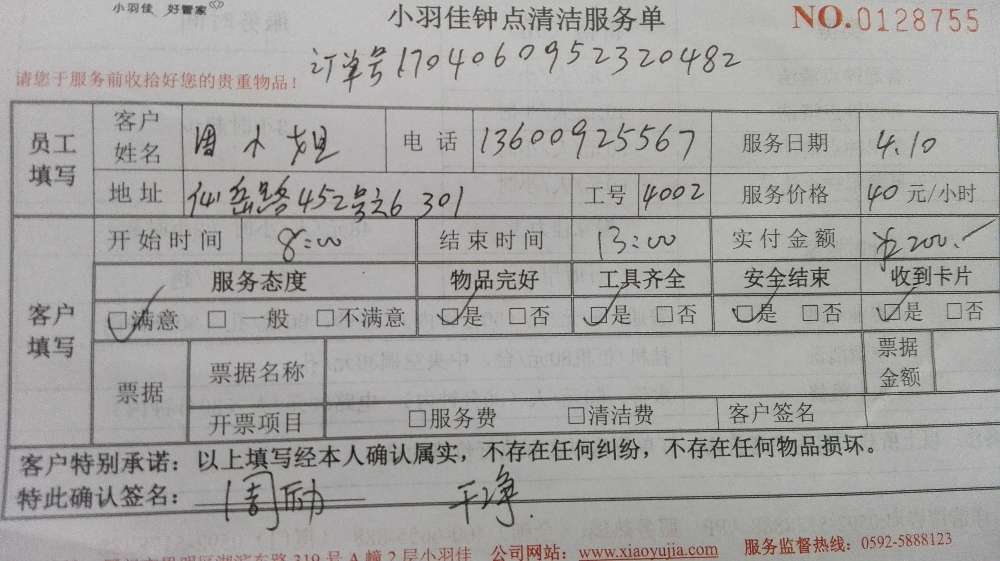 小羽佳 好管家
小羽佳钟点清洁服务单
NO.0128755
订单号1704060952320482
请您于服务前收拾好您的贵重物品！
员工填写 客户姓名 周小姐 电话 13600925567 服务日期 4.10
地址 仙岳路452号之6 301 工号 4002 服务价格 40元/小时
客户填写 开始时间 8:00 结束时间 13:00 实付金额 ¥200.-
服务态度 物品完好 工具齐全 安全结束 收到卡片
☑满意 □一般 □不满意 ☑是 □否 ☑是 □否 ☑是 □否 ☑是 □否
票据 票据名称 票据金额
开票项目 □服务费 □清洁费 客户签名
客户特别承诺：以上填写经本人确认属实，不存在任何纠纷，不存在任何物品损坏。
特此确认签名：周励 干净
319号A幢2层小羽佳 公司网站：www.xiaoyujia.com 服务监督热线：0592-5888123